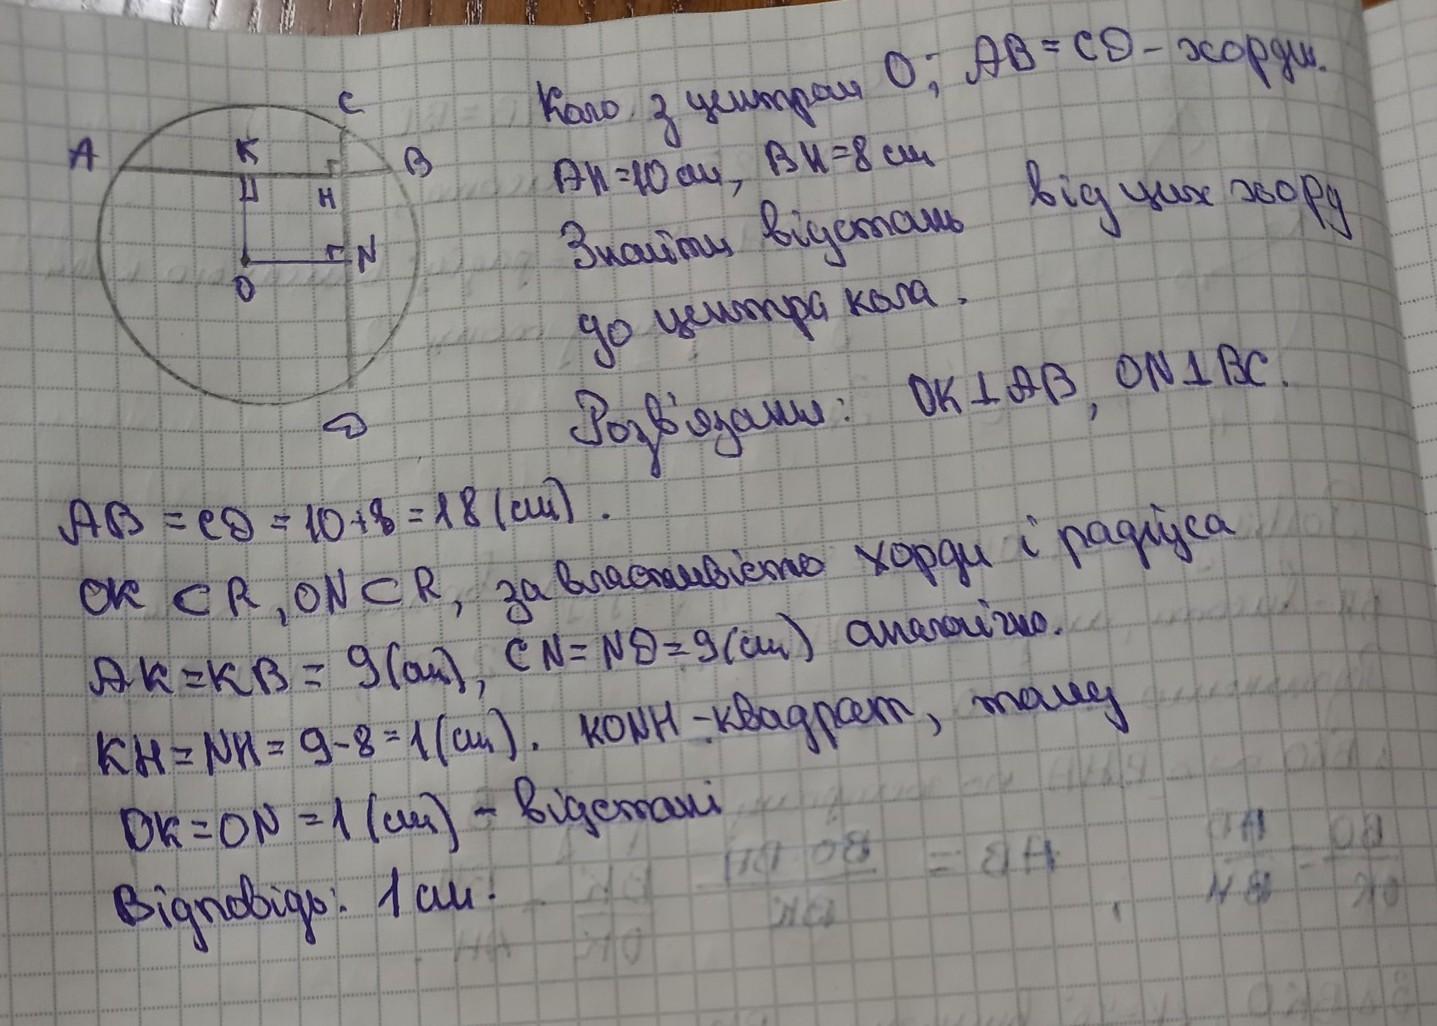 Коло з центром О; AB = CD - хорди.
AH=10 см, BH=8 см
Знайти відстань від цих хорд
до центра кола.
Розв'язання: OK⊥AB, ON⊥BC.
C
A
K
B
H
N
O
D
AB = CD = 10+8 = 18 (см).
OK ⊂ R, ON ⊂ R, за властивістю хорди і радіуса
AK = KB = 9 (см), CN = ND = 9 (см) аналогічно.
KH = NH = 9-8 = 1 (см). KONH - квадрат, тому
OK = ON = 1 (см) - відстані
Відповідь: 1 см.